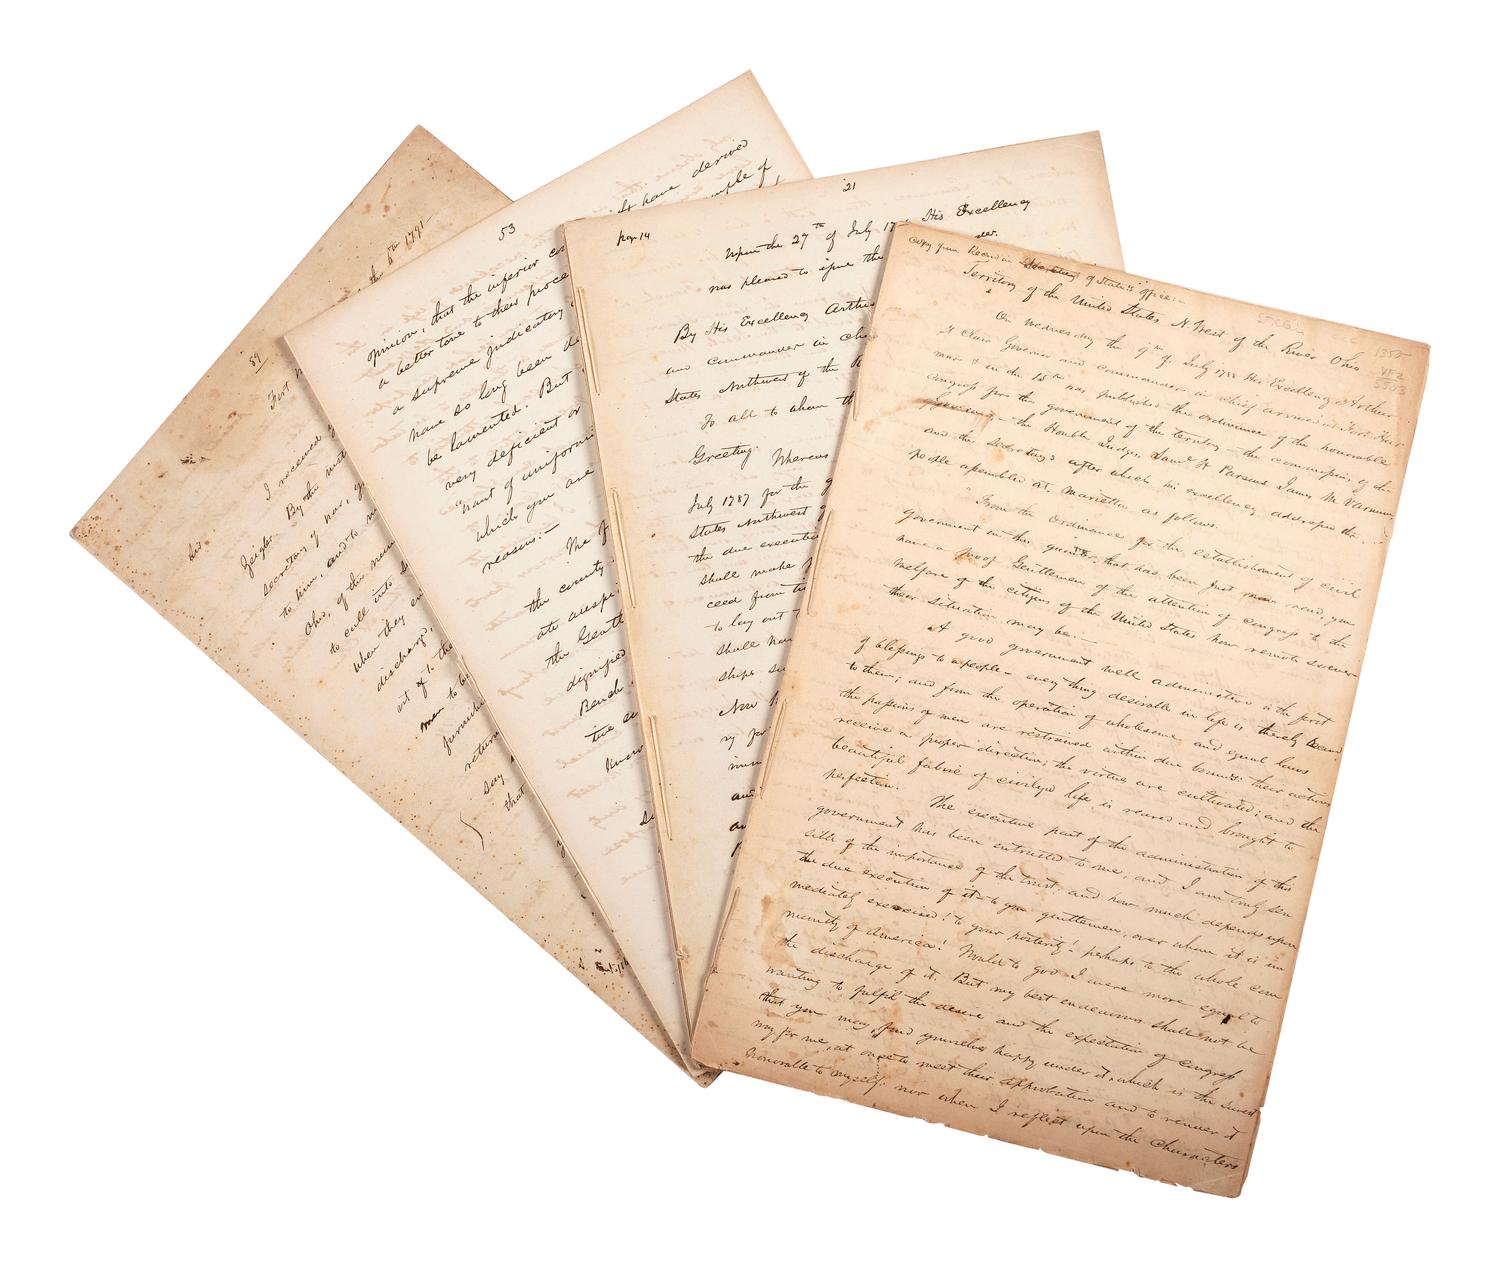 Copy from Record in Secretary of State's office:-
Territory of the United States N. West of the River Ohio
On Wednesday the 9th of July 1788 His Excellency Arthur
St Clair Governor and commander in chief arrived at Fort Har
mar & on the 15th was published the ordinance of the honorable
Congress for the government of the territory - the commissions of the
Governor - the Honble Judges, Saml H Parsons James M. Varnum
and the Secretary: after which his excellency addressed the
people assembled at Marietta as follows.
"From the Ordinance for the establishment of civil
government in this quarter, that has been just now read, you
have a proof Gentlemen of the attention of Congress to the
welfare of the citizens of the United States how remote soever
their situation may be:-
A good government well administered is the first
of blessings to a people - every thing desirable in life is thereby secured
to them; and from the operation of wholesome and equal laws
the passions of men are restrained within due bounds: their actions
receive a proper direction; the virtues are cultivated; and the
beautiful fabric of civilized life, is reared and brought to
perfection.
The executive part of the administration of this
government has been entrusted to me; and I am truly sen
sible of the importance of the trust: and how much depends upon
the due execution of it - to you gentlemen, over whom it is im
mediately exercised! to your posterity! perhaps to the whole com
munity of America! Would to god I were more equal to
the discharge of it. But my best endeavours shall not be
wanting to fulfil the desire and the expectation of congress
that you may find yourselves happy under it, which is the surest
way for me, at once to meet their approbation and to render it
honorable to myself: nor when I reflect upon the characters
1355
VFZ
21
page 14
Upon the 27th of July His Excellency
was pleased to issue the
By His Excellency Arthur
and Commander in Ch
States Northwest of the
To all to whom th
Greeting. Whereas
July 1787 for the g
States Northwest
the due executi
shall make
ceed from ti
to lay out
shall ha
ships
Now
ry for
53
have derived
mple of
opinion, that the inferior co
a better tone to their proce
a supreme judicatory
have so long been de
be lamented. But
very deficient or
"want of uniformi
which you are
reason:-
The
the county
ate
the Gentl
dignified
Bench
tive
know
89
Fort the 8th 1791
Sir.
I received
By the inst
Zeigler
secretary of war, y
to him, and to
Ohio, of the
to call into
when they
discharge,
out of the
men to be
furnish
return
say
that